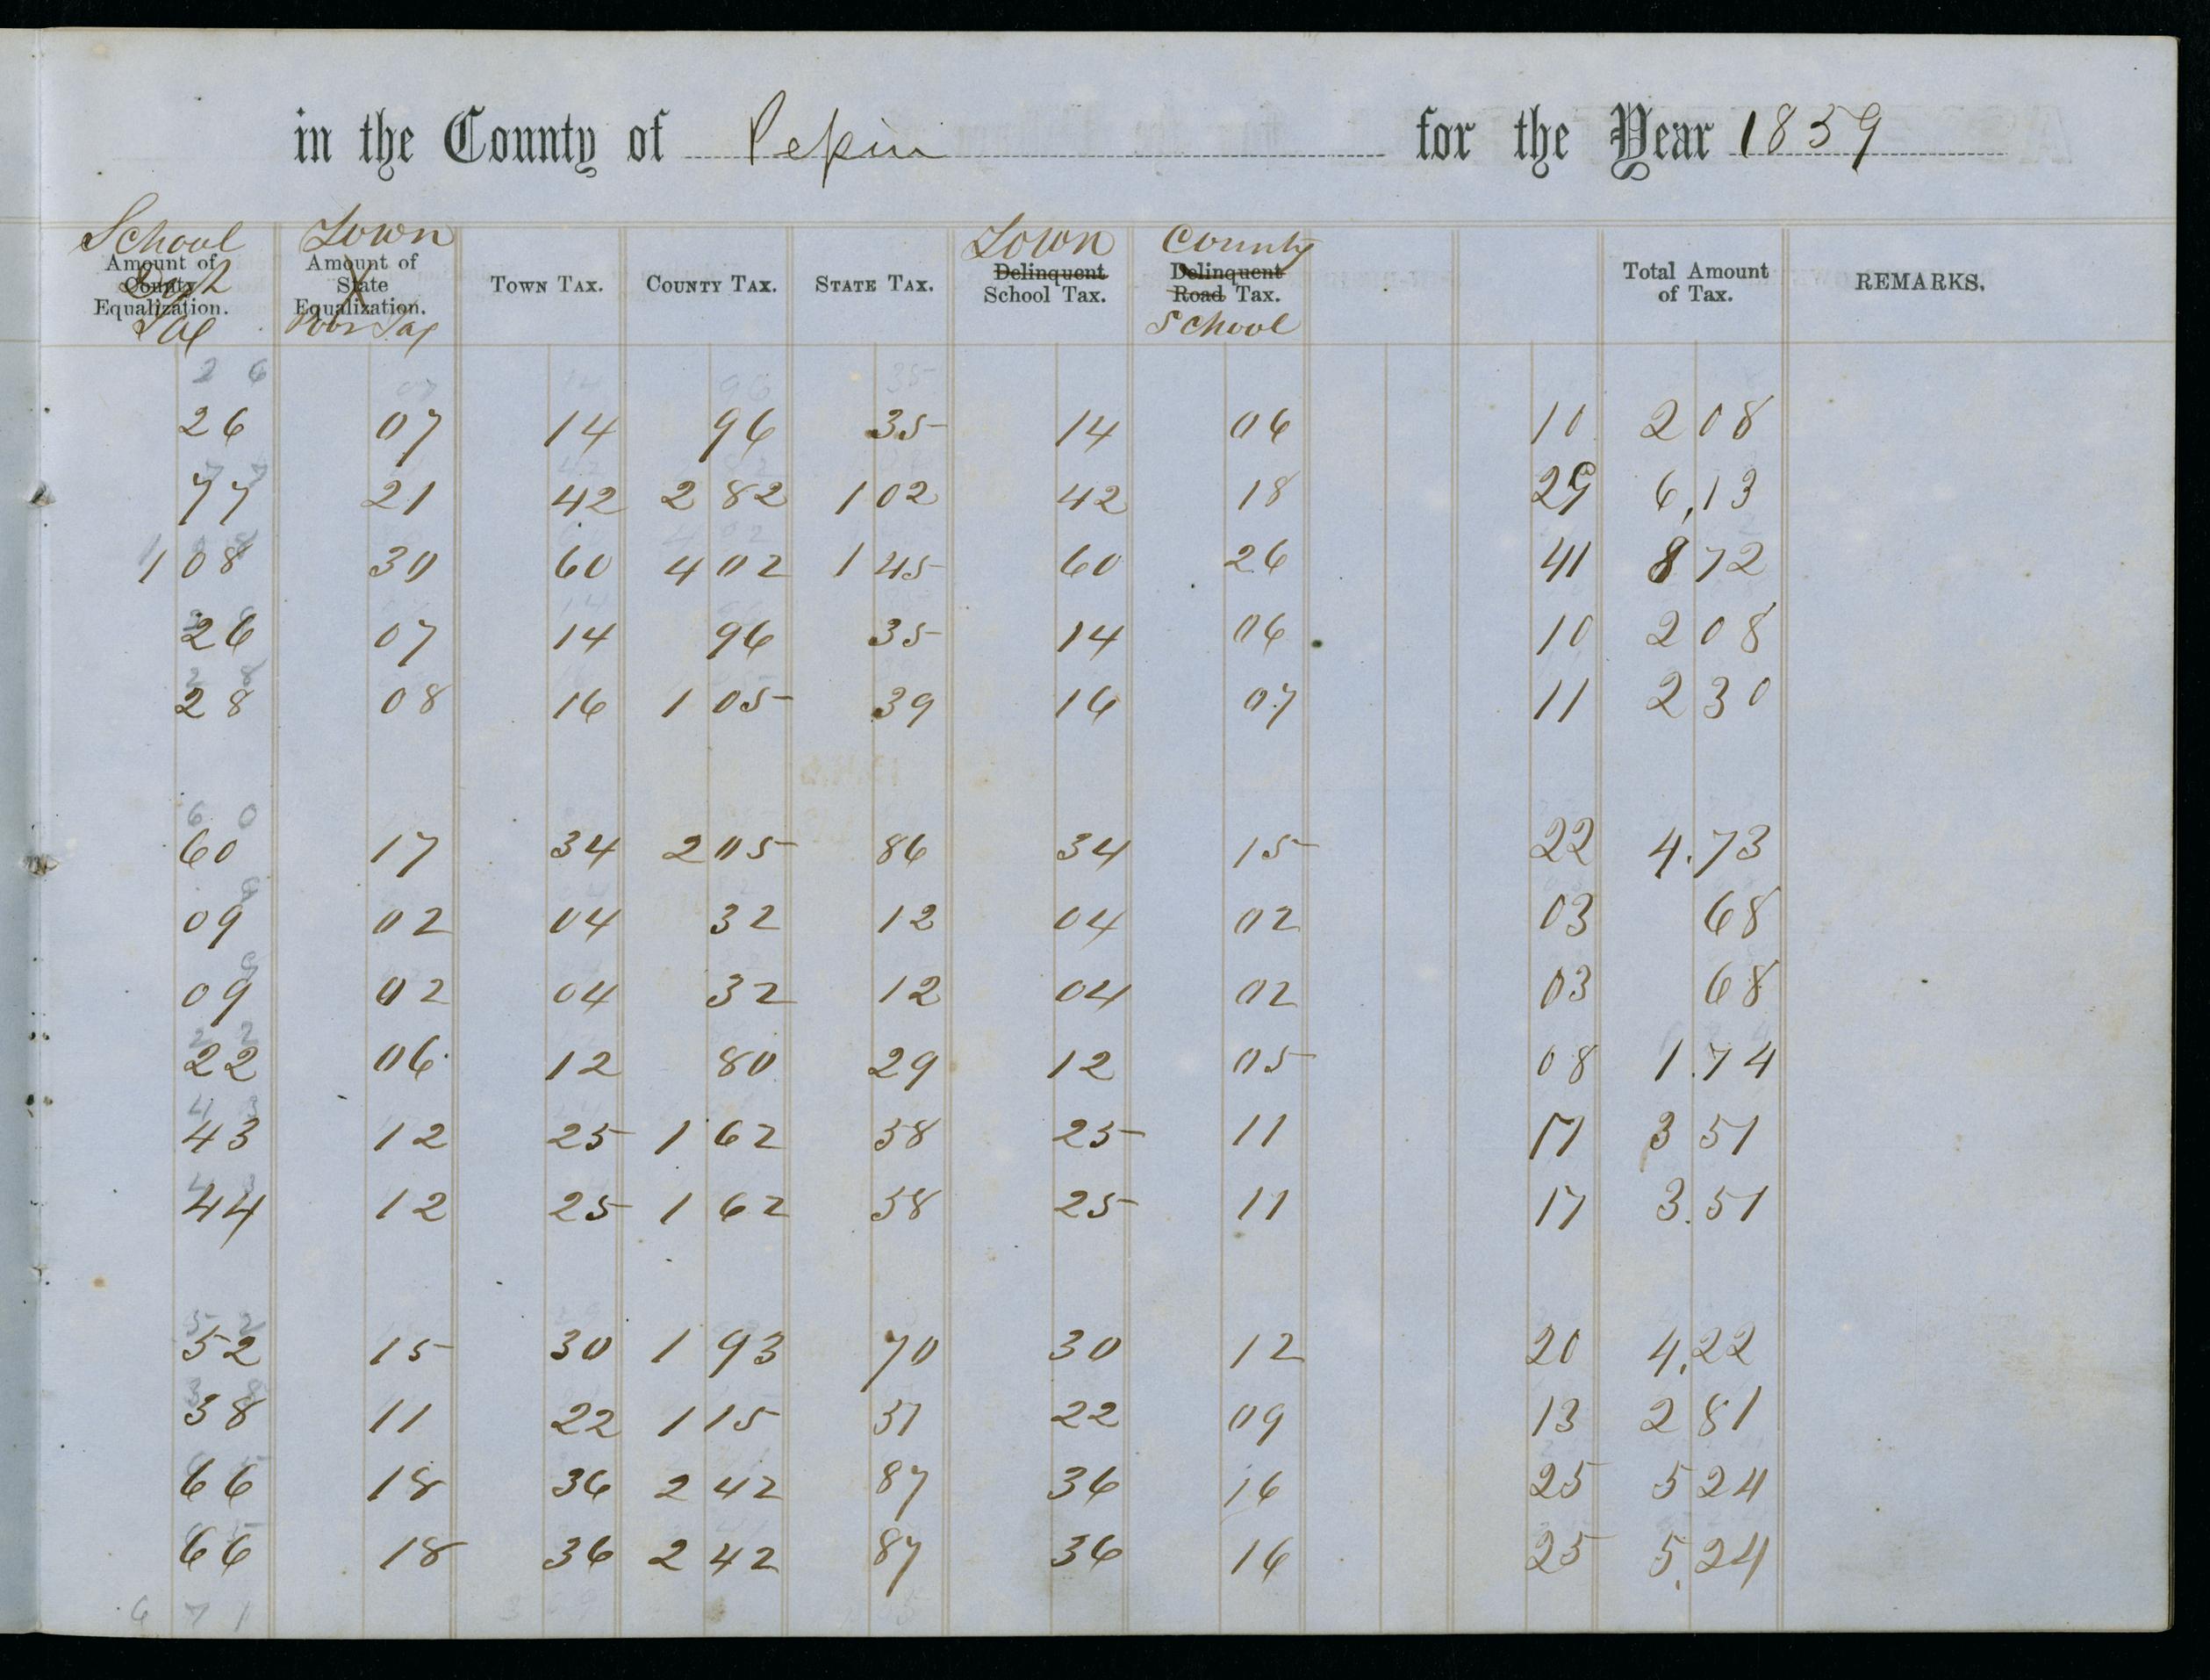 in the County of Pepin for the Year 1859
School Town Town County
Amount of County Equalization. Amount of State Equalization. Town Tax. County Tax. State Tax. Delinquent School Tax. Delinquent Road Tax. Total Amount of Tax. REMARKS.
Tax Poor Tax School
2 6 07 14 96 35
26 07 14 96 35 14 06 10 2 08
77 21 42 2 82 1 02 42 18 29 6,13
1 08 30 60 4 02 1 45 60 26 41 8 72
26 07 14 96 35 14 06 10 2 08
28 08 16 1 05 39 16 07 11 2 30
6 0
60 17 34 2 05 86 34 15 22 4.73
09 02 04 32 12 04 02 03 68
09 02 04 32 12 04 02 03 68
22 06 12 80 29 12 05 08 1.74
43 12 25 1 62 58 25 11 17 3 51
44 12 25 1 62 58 25 11 17 3.51
5 2
52 15 30 1 93 70 30 12 20 4,22
38 11 22 1 15 31 22 09 13 2 81
66 18 36 2 42 87 36 16 25 5 24
66 18 36 2 42 87 36 16 25 5.24
6 71